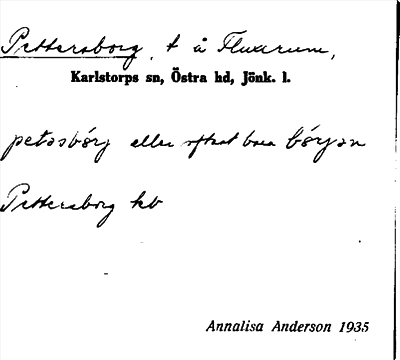 Pettersborg, t å Fluxerum,
Karlstorps sn, Östra hd, Jönk. l.
petəsbórj eller oftast bara bórjən
Pettersborg kb
Annalisa Anderson 1935